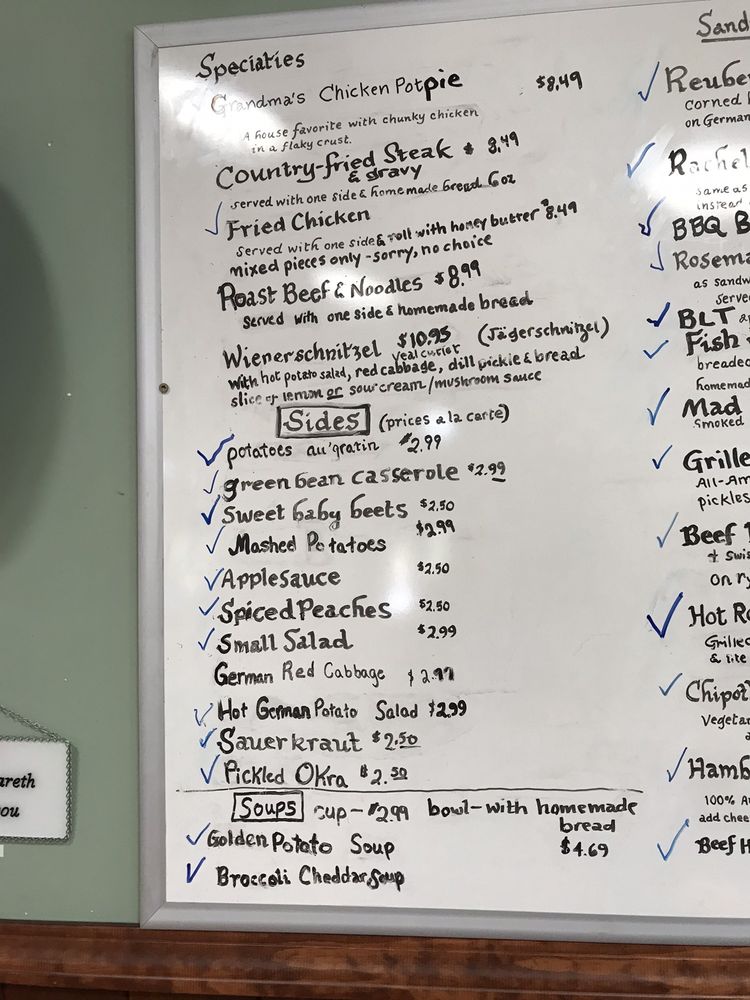 Specialties
Grandma's Chicken Potpie $8.49
A house favorite with chunky chicken
in a flaky crust.
Country-fried Steak $ 8.49
& gravy
served with one side & homemade bread 6oz
Fried Chicken
Served with one side & roll with honey butter $8.49
mixed pieces only - sorry, no choice
Roast Beef & Noodles $8.99
Served with one side & homemade bread
Wienerschnitzel $10.95 (Jägerschnitzel)
Veal cutlet
with hot potato salad, red cabbage, dill pickle & bread
slice of lemon or sour cream/mushroom sauce
Sides (prices a la carte)
potatoes au'gratin $2.99
green bean casserole $2.99
Sweet baby beets $2.50
Mashed Potatoes $2.99
Applesauce $2.50
Spiced Peaches $2.50
Small Salad $2.99
German Red Cabbage $2.99
Hot German Potato Salad $2.99
Sauerkraut $2.50
Pickled Okra $2.50
Soups cup - $2.99 bowl - with homemade
bread
Golden Potato Soup $4.69
Broccoli Cheddar Soup
Sand
Reube
Corned
on German
Rachel
same as
instead
BBQ B
Rosema
as sandw
serve
BLT
Fish
breade
homemad
Mad
Smoked
Grille
All-Am
pickles
Beef
& Swis
on ry
Hot Ro
Grilled
& lite
Chipot
Vegetar
Hamb
100% A
add chee
Beef H
areth
ou